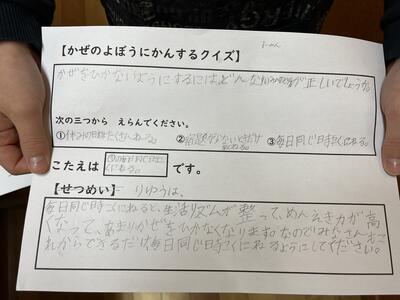 【かぜのよぼうにかんするクイズ】
かぜをひかないようにするには、どんな 方が正しいでしょうか。
次の三つから えらんでください。
①休みの日にたくさんねる。 ② ないときだけ ねる。 ③毎日同じ時こくにねる。
こたえは ③の毎日同じ時こ くにねる。 です。
【せつめい】 りゆうは、
毎日同じ時こくにねると、生活リズムが整って、めんえき力が高
くなって、あまりかぜをひかなくなります。なのでみなさんもこ
れからできるだけ毎日同じ時こくにねるようにしてください。